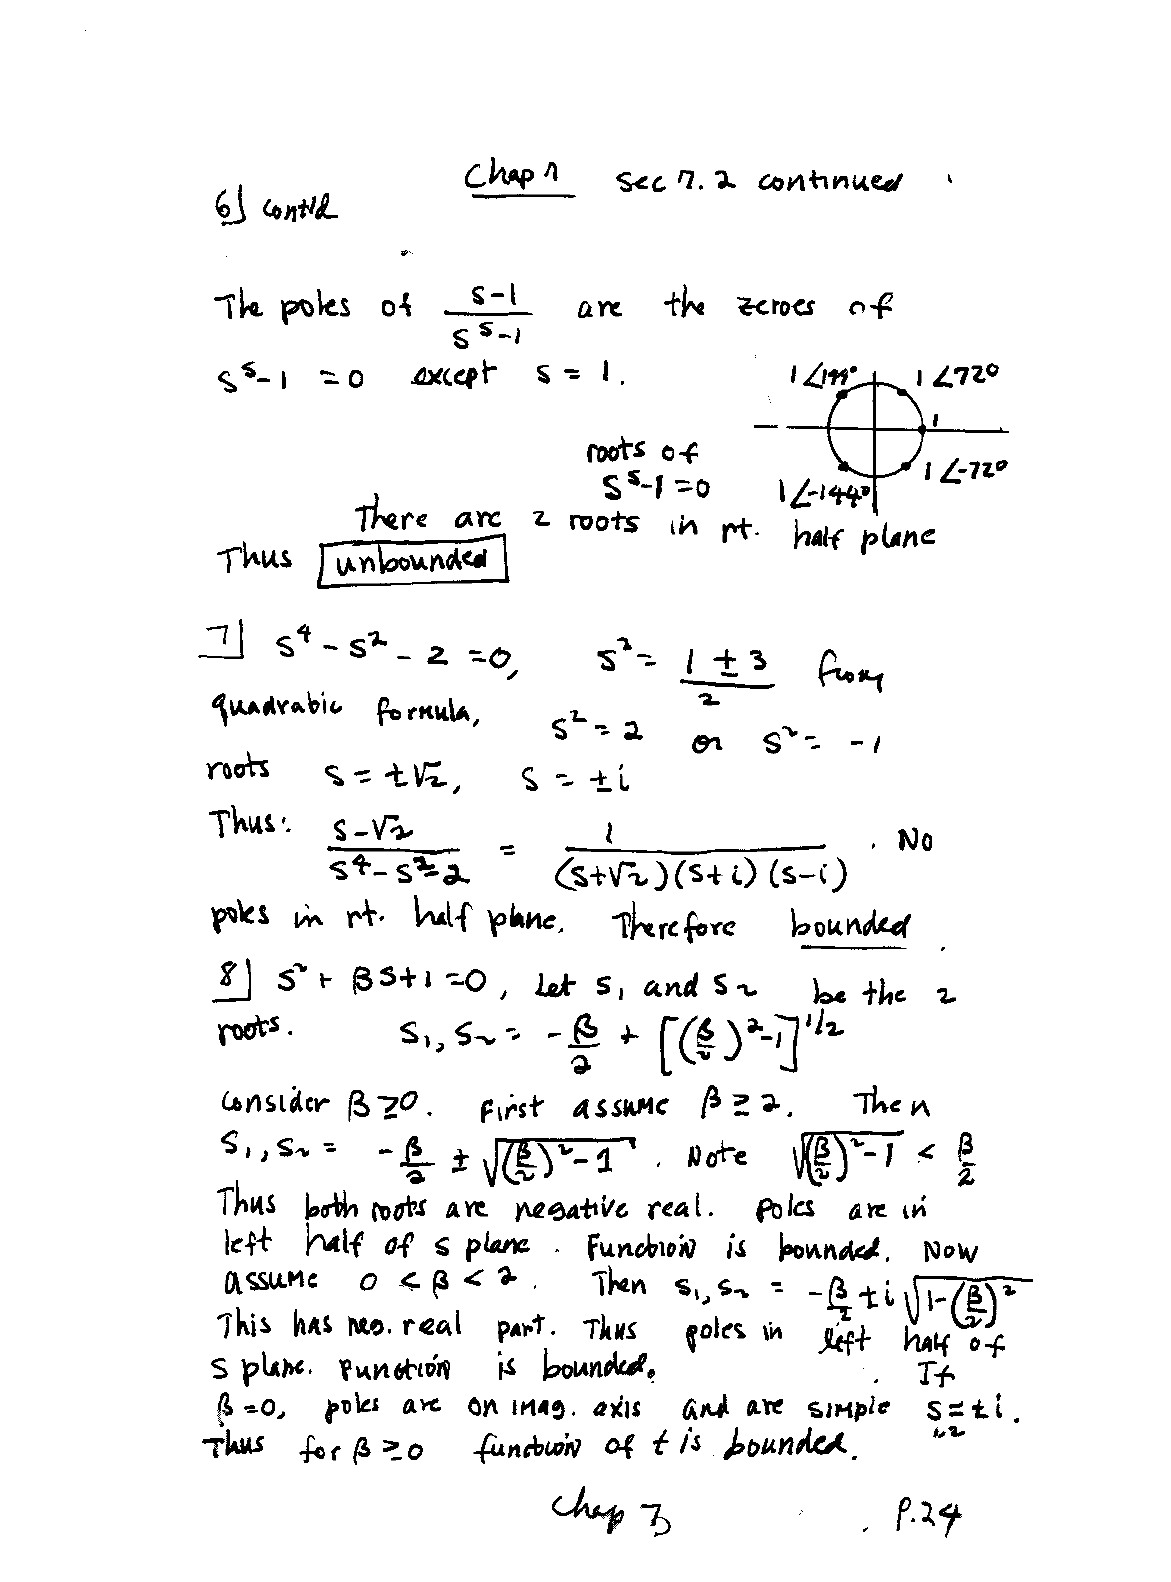 Chap 7 Sec 7.2 continued
6] cont'd
The poles of (s-1)/(s^5-1) are the zeroes of
s^5-1 =0 except s = 1.
1∠144° 1∠72°
1
roots of
s^5-1=0
1∠-144° 1∠-72°
There are 2 roots in rt. half plane
Thus unbounded
7] s^4 - s^2 - 2 =0, s^2 = (1 ± 3)/2 from
quadratic formula, s^2 = 2 or s^2 = -1
roots s = ±√2, s = ±i
Thus: (s-√2)/(s^4-s^2-2) = 1/((s+√2)(s+i)(s-i)). No
poles in rt. half plane. Therefore bounded.
8] s^2 + βs+1 =0, Let s1 and s2 be the 2
roots. s1, s2 = -β/2 + [(β/2)^2-1]^1/2
Consider β≥0. First assume β≥2. Then
s1, s2 = -β/2 ± √((β/2)^2-1). Note √((β/2)^2-1) < β/2
Thus both roots are negative real. Poles are in
left half of s plane. Function is bounded. Now
assume 0 < β < 2. Then s1, s2 = -β/2 ± i√(1-(β/2)^2)
This has neg. real part. Thus poles in left half of
s plane. Function is bounded. If
β=0, poles are on imag. axis and are simple s1,2 = ±i.
Thus for β≥0 function of t is bounded.
Chap 7 P.24